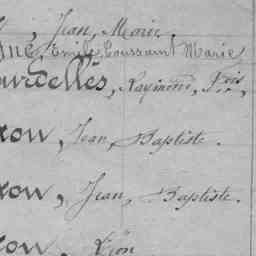 , Jean, Marie.
ne, Emile, Toussaint Marie
urdellès, Raymond, Fois.
ron, Jean, Baptiste.
ron, Jean, Baptiste.
ron, Léon